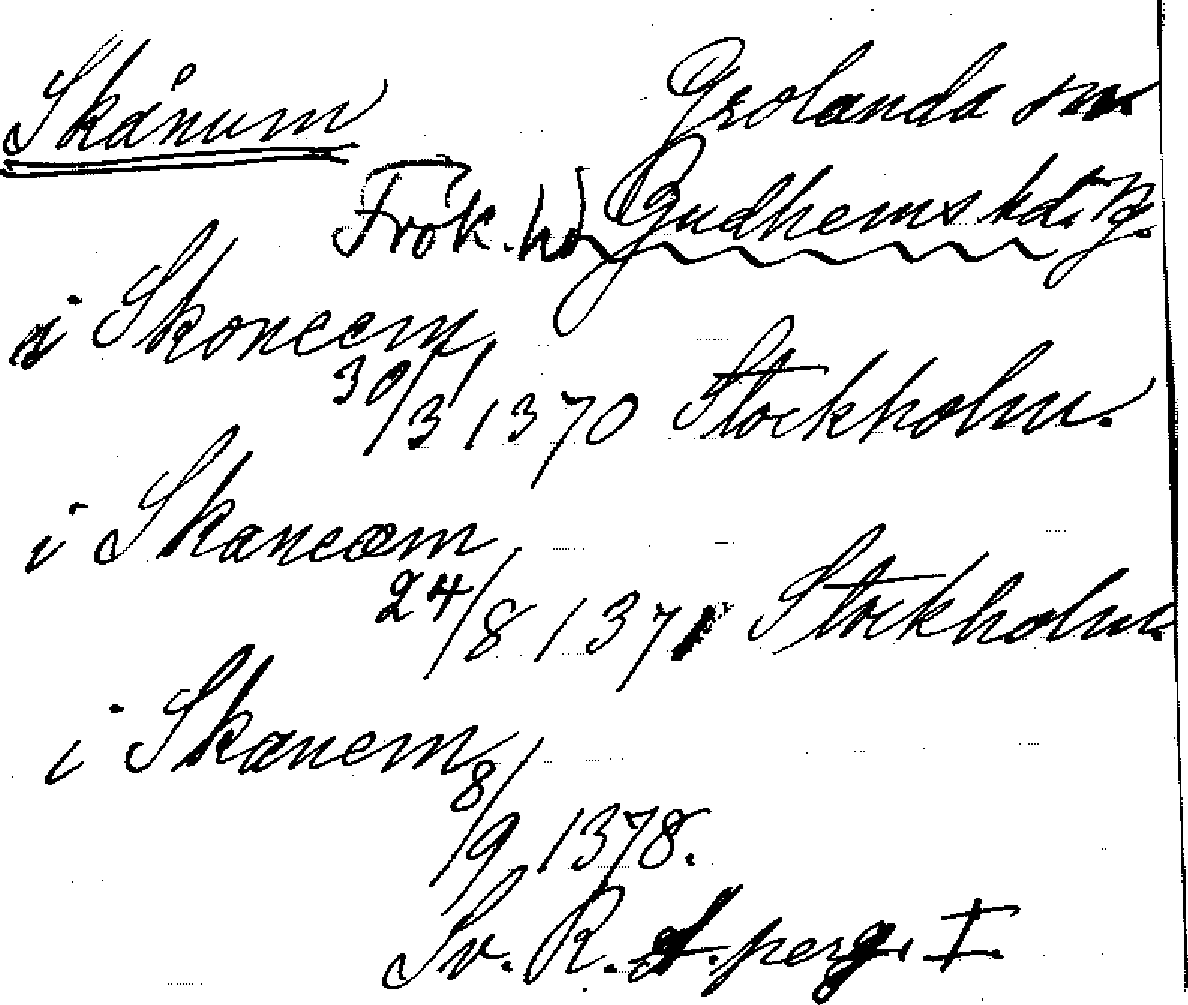 Skånum Grolanda sn
Frök. hd Gudhems hd.
i Skoneem
30/3 1370 Stockholm.
i Skaneæm
24/8 1371 Stockholm.
i Skanem
8/9 1378.
Sv. R. A. perg. I.